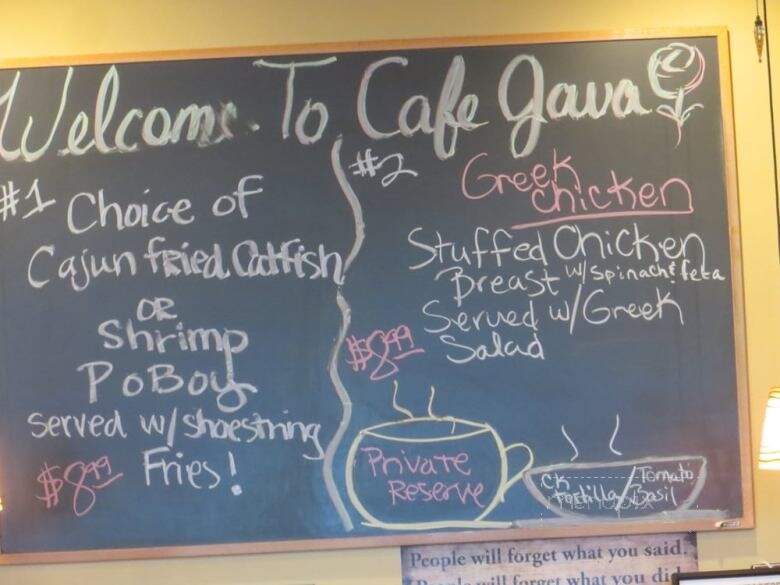 Welcome To Cafe Java
#1 Choice of
Cajun fried Catfish
OR
Shrimp
PoBoy
Served w/shoestring
Fries!
$8.99
#2
Greek
Chicken
Stuffed Chicken
Breast w/Spinach & feta
Served w/Greek
Salad
$8.99
Private
Reserve
CK
Tortilla/
Tomato
Basil
People will forget what you said.
People will forget what you did